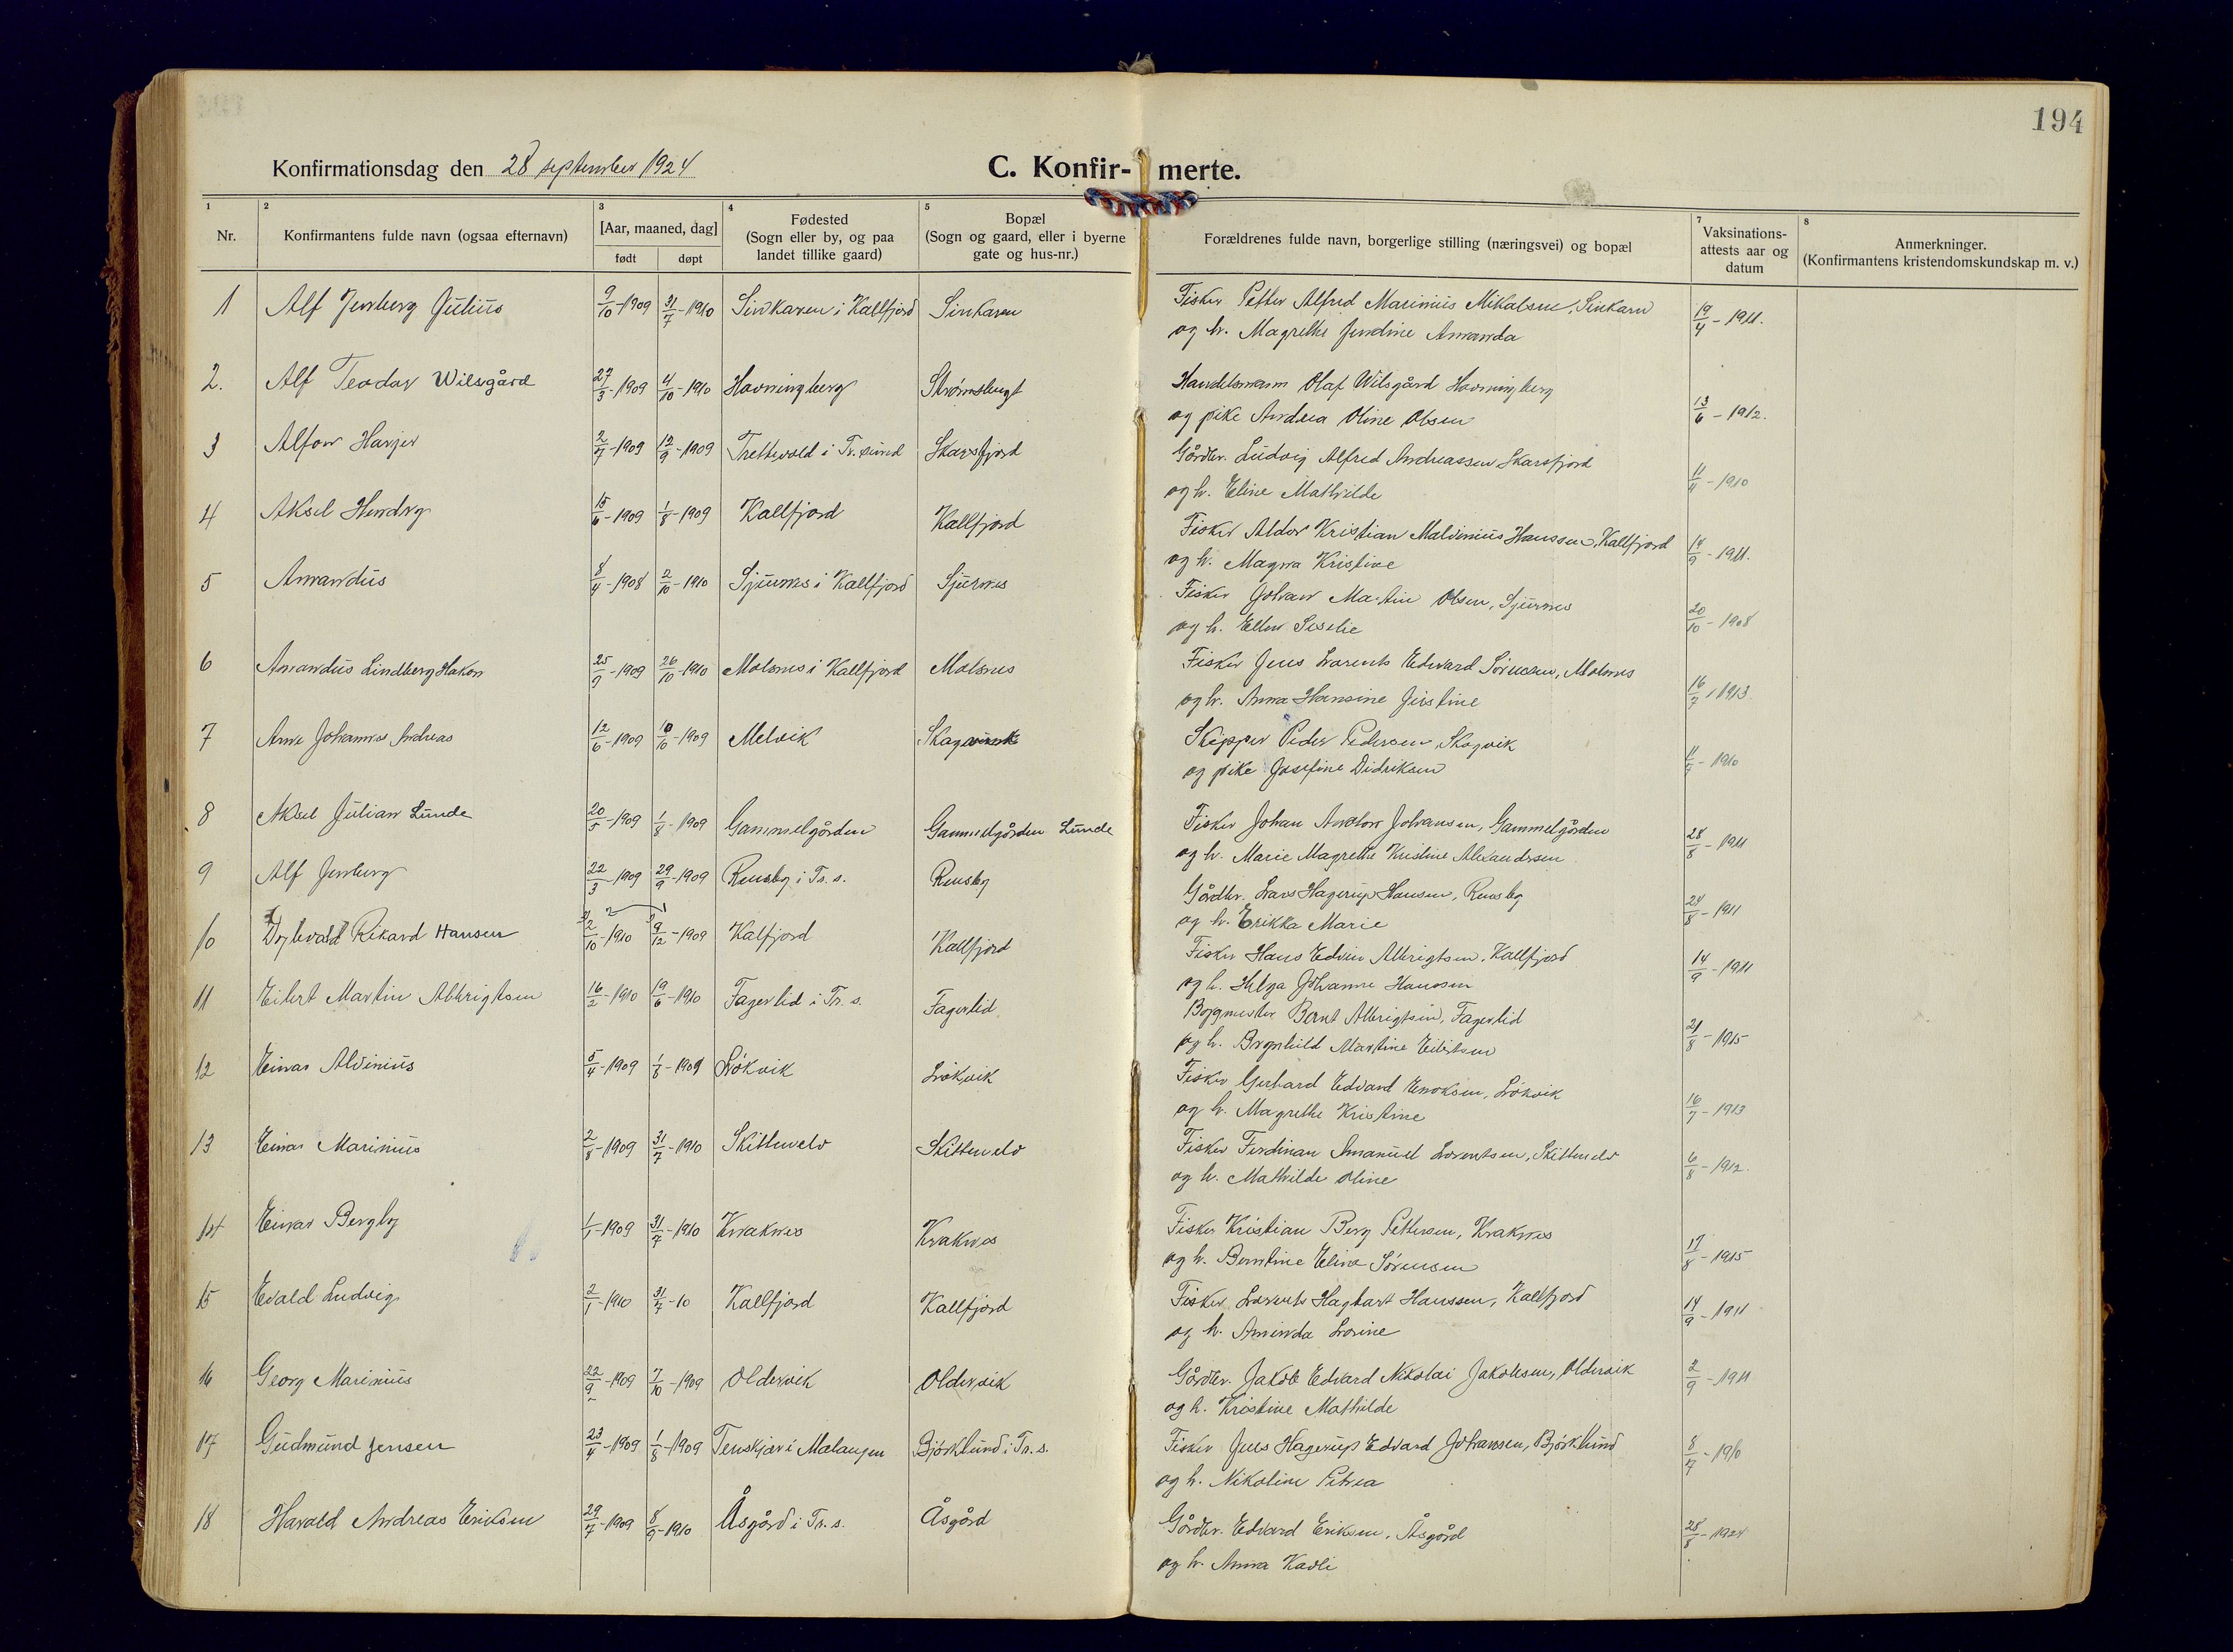 194
Konfirmationsdag den 28 september 1924
C. Konfir- merte.
1 Nr.
2 Konfirmantens fulde navn (ogsaa efternavn)
3 [Aar, maaned, dag] født døpt
4 Fødested (Sogn eller by, og paa landet tillike gaard)
5 Bopæl (Sogn og gaard, eller i byerne gate og hus-nr.)
Forældrenes fulde navn, borgerlige stilling (næringsvei) og bopæl
7 Vaksinations-attests aar og datum
8 Anmerkninger. (Konfirmantens kristendomskundskap m. v.)
1 Alf Jenberg Julius 9/10-1909 31/7-1910 Sinkaren i Kallfjord Sinkaren Fisker Petter Alfred Marinius Mikalsen, Sinkaren 19/4-1911.
og h. Magrethe Jendine Amanda
2. Alf Teodor Wilsgård 27/3-1909 4/10-1910 Havningberg Strømsbugt Handelsmann Olaf Wilsgård Havningberg
og pike Andrea Oline Olsen 13/6-1912.
3 Alfon Harjer 2/7-1909 12/9-1909 Trettevold i Tr.sund Skarsfjord Gårdbr. Ludvig Alfred Andreassen Skarsfjord
og h. Eline Mathilde 11/4-1910
4 Aksel Hendry 15/6-1909 1/8-1909 Kallfjord Kallfjord Fisker Aldor Kristian Malvinius Hanssen, Kallfjord
og h. Magna Kristine 14/9-1911.
5 Amandus 8/4-1908 2/10-1910 Sjurnes i Kallfjord Sjurnes Fisker Johan Martin Olsen, Sjurnes
og h. Ellen Seselie 20/10-1908
6 Amandus Lindberg Hakon 25/9-1909 26/10-1910 Molsnes i Kallfjord Molsnes Fisker Jens Lorents Edvard Sørensen, Molsnes
og h. Anna Hansine Justine 16/7 1913
7 Arne Johannes Andreas 12/6-1909 10/10-1909 Melvik Skagvik Skipper Peder Pedersen, Skogvik
og pike Josefine Didriksen 1910
8 Aksel Julian Lunde 20/5-1909 1/8-1909 Gammelgården Gammelgården Lunde Fisker Johan Anton Johansen, Gammelgården
og h. Marie Magrethe Kristine Alexandersen 28/8-1911
9 Alf Jenberg 22/3-1909 29/9-1909 Rensby i Tr. s. Rensby Gårdbr. Lars Hagerup Hansen, Rensby
og h. Erikka Marie 28/8-1911
10 Rikard Hansen 2/10-1910 9/12-1909 Kalfjord Kallfjord Fisker Hans Edvin Albrigtsen, Kallfjord
og h. Helga Johanne Hanssen 14/9-1911
11 Eilert Martin Albrigtsen 16/2-1910 19/6-1910 Fagerlid i Tr. s. Fagerlid Byggmester Bernt Albrigtsen, Fagerlid
og h. Brynhild Martine Eilertsen 21/8-1915
12 Einar Alvinius 5/4-1909 1/8-1909 Løkvik Løkvik Fisker Gerhard Edvard Enoksen, Løkvik
og h. Magrethe Kristine 16/7-1913
13 Einar Marinius 2/8-1909 31/7-1910 Skittenelv Skittenelv Fisker Ferdinan Emanuel Lorentsen, Skittenelv
og h. Mathilde Oline 6/8-1912.
14 Einar Bergby 1/1-1909 31/7-1910 Kraknes Kraknes Fisker Kristian Berg Pettersen, Kraknes
og h. Berntine Elina Sørensen 17/8-1915
15 Evald Ludvig 2/1-1910 31/7-10 Kallfjord Kallfjord Fisker Lorents Hagbart Hanssen, Kallfjord
og h. Aminda Lorine 14/9-1911
16 Georg Marinius 22/9-1909 7/10-1909 Oldervik Oldervik Gårdbr. Jakob Edvard Nikolai Jakobsen, Oldervik
og h. Kristine Mathilde 2/9-1911
17 Gudmund Jensen 23/4-1909 1/8-1909 Tenskjær i Malangen Bjørklund i Tr. s. Fisker Jens Hagerup Edvard Johansen, Bjørklund
og h. Nikoline Petrea 8/7-1910
18 Harald Andreas Eriksen 29/7-1909 8/9-1910 Åsgård i Tr. s. Åsgård Gårdbr. Edvard Eriksen, Åsgård
og h. Anna Kadli 28/8-1924